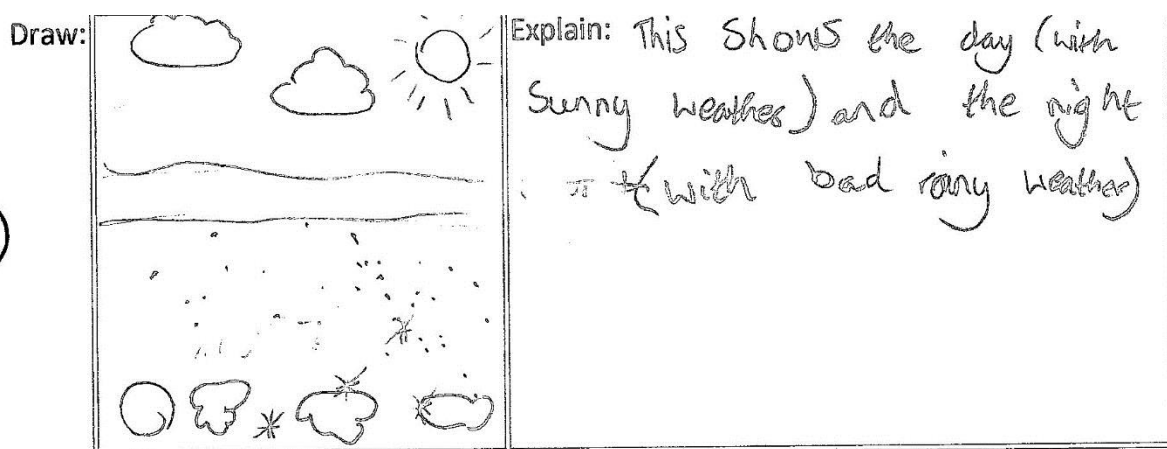 Draw:
Explain: This Shows the day (with
Sunny weather) and the night
(with bad rainy weather)